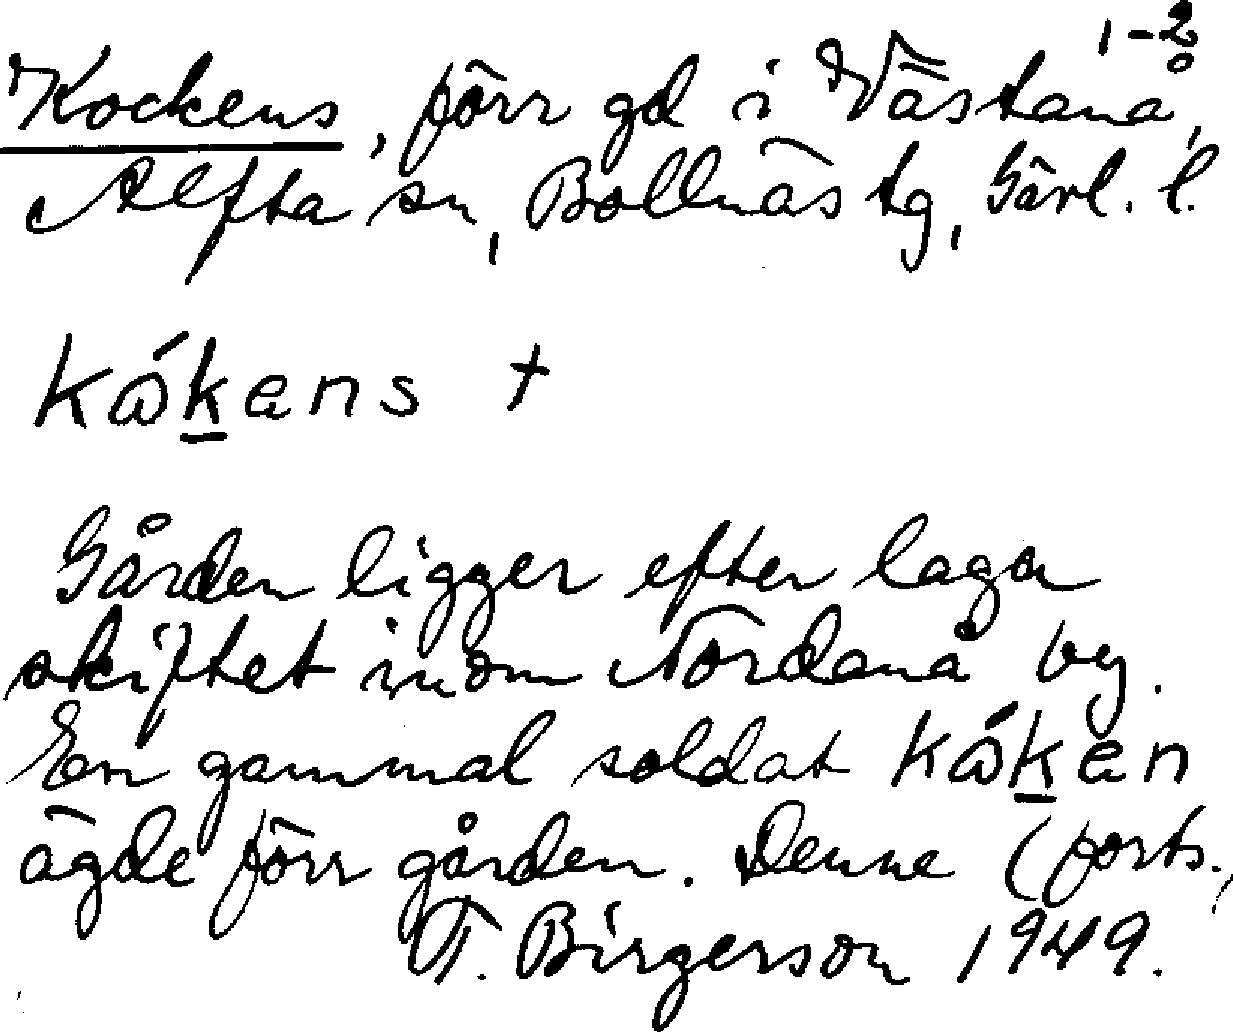 1-2
Kockens, förr gd i Västanå,
Alfta sn, Bollnäs tg, Gävl. l.
kåkens +
Gården ligger efter laga
skiftet inom Nordanå by.
En gammal soldat kåken
ägde förr gården. Denne (forts.,
T. Birgerson 1949.